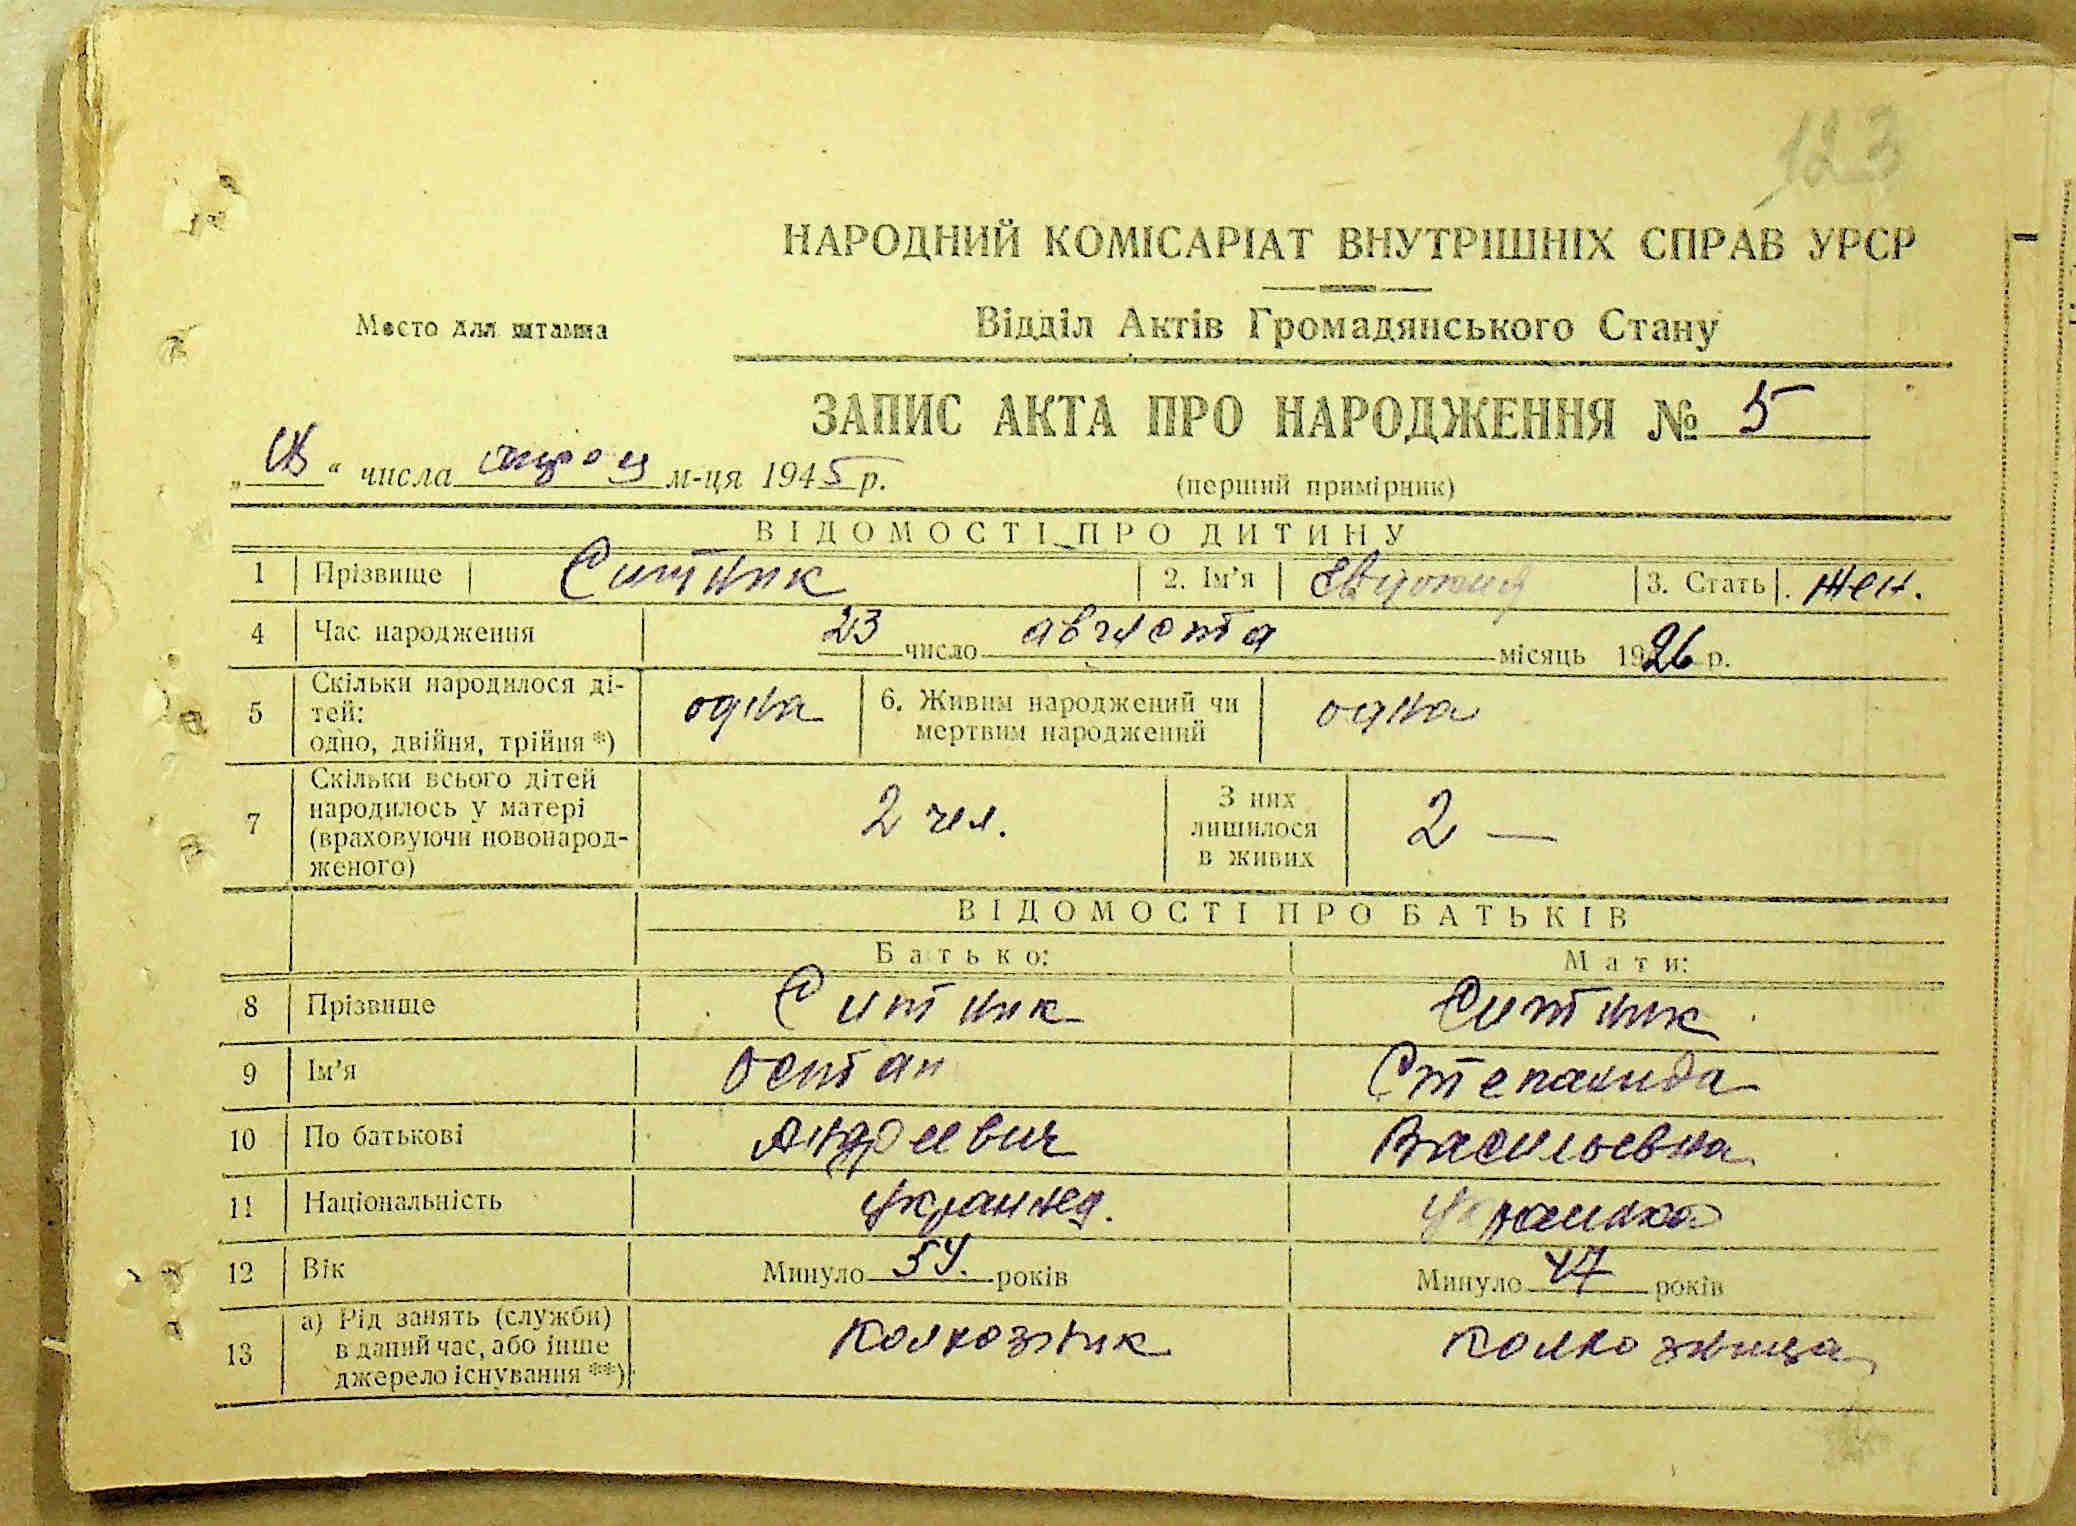 123
НАРОДНИЙ КОМІСАРІАТ ВНУТРІШНІХ СПРАВ УРСР
Место для штампа
Відділ Актів Громадянського Стану
ЗАПИС АКТА ПРО НАРОДЖЕННЯ № 5
„ “ числа м-ця 1945 р.
(перший примірник)
ВІДОМОСТІ ПРО ДИТИНУ
1 Прізвище Ситник 2. Ім’я 3. Стать жен.
4 Час народження 23 число августа місяць 1926 р.
5 Скільки народилося ді-
тей:
одно, двійня, трійня *) одна 6. Живим народжений чи
мертвим народжений одна
7 Скільки всього дітей
народилось у матері
(враховуючи новонарод-
женого) 2 чел. З них
лишилося
в живих 2 —
ВІДОМОСТІ ПРО БАТЬКІВ
Батько: Мати:
8 Прізвище Ситник Ситник
9 Ім’я Остап Степанида
10 По батькові Андреевич Васильевна
11 Національність украинец. Украинка
12 Вік Минуло 54. років Минуло 47 років
13 а) Рід занять (служби)
в даний час, або інше
джерело існування **) Колхозник колхозница